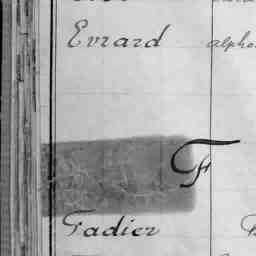 Evrard alpho
F
Fadier